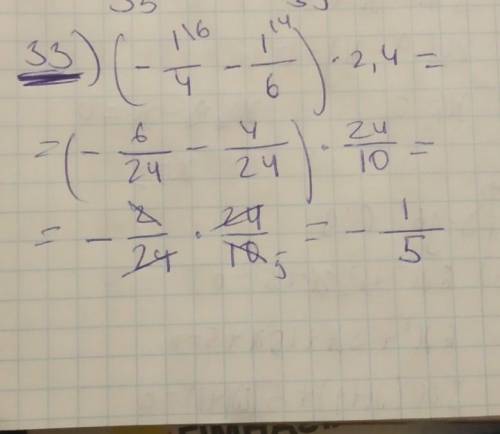 33) (- 1\6/4 - 1\4/6) · 2,4 =
= (- 6/24 - 4/24) · 24/10 =
= - 2/24 · 24/10 5 = - 1/5